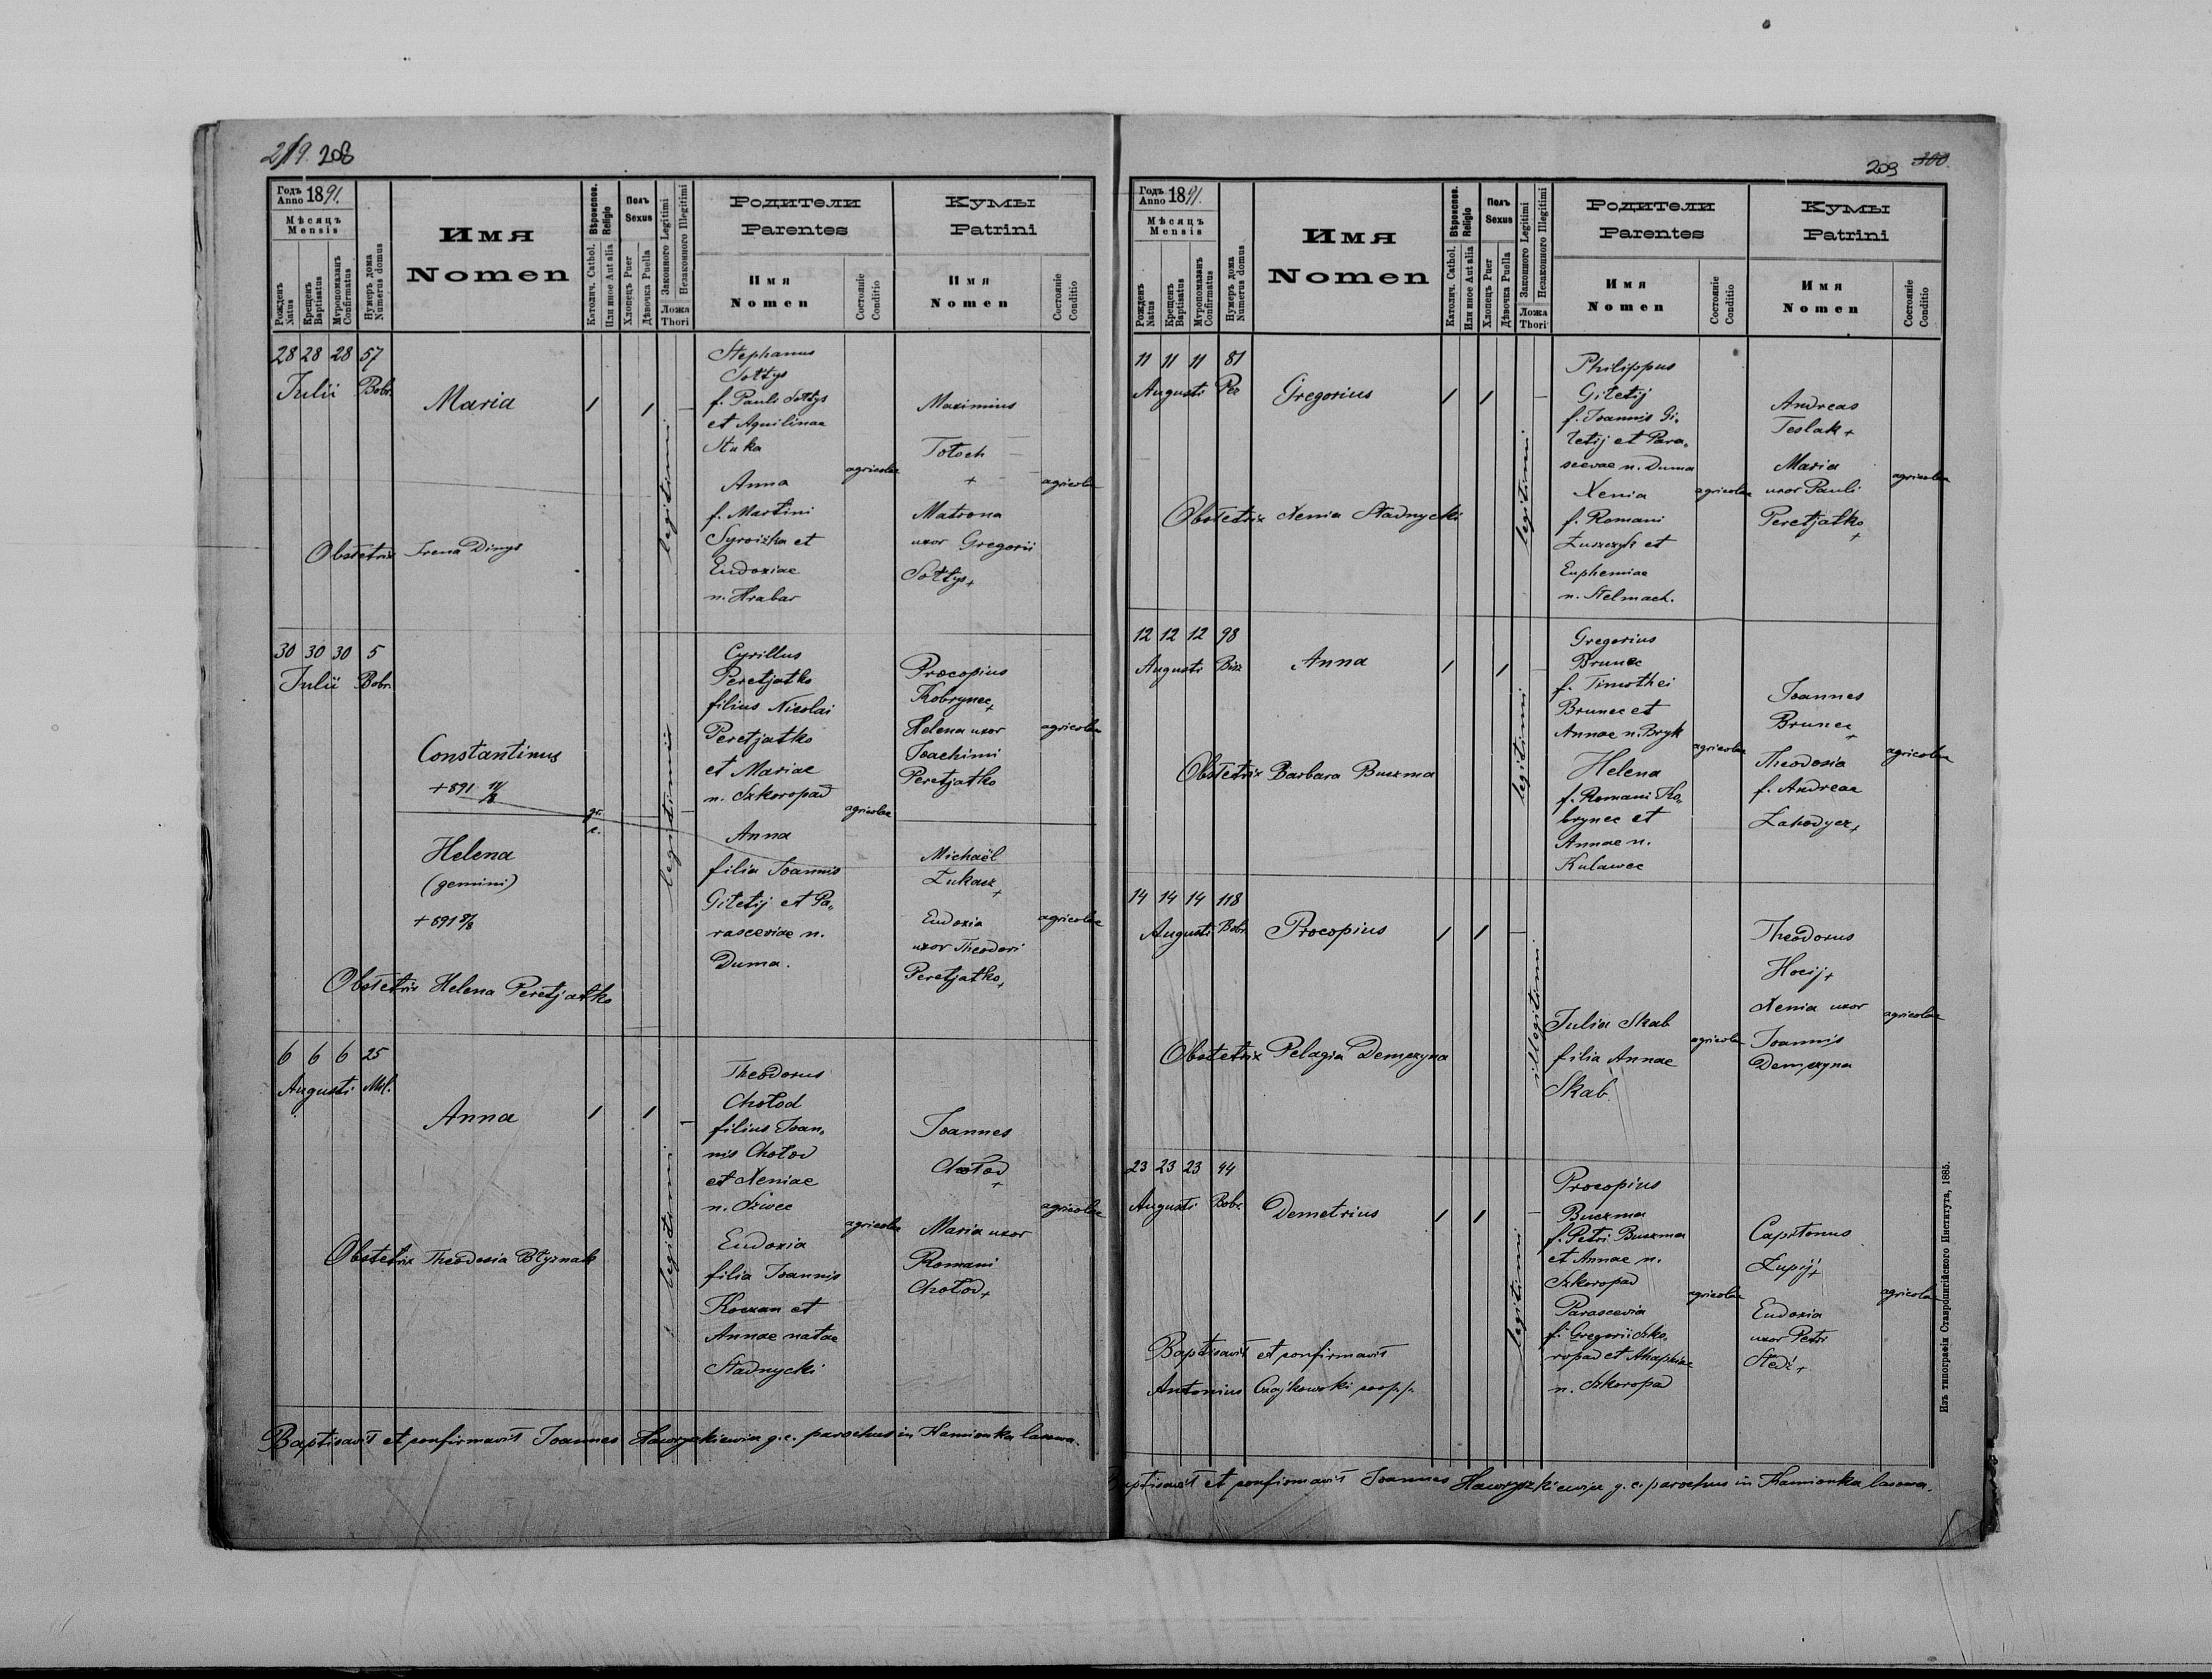 219. 208
Годъ Anno 1891.
Мѣсяцъ
Mensis
Рожденъ Natus
Крещенъ Baptisatus
Мѵропомазанъ Confirmatus
Нумеръ дома Numerus domus
Имя
Nomen
Вѣроиспов. Religio
Католич. Cathol.
Или иное Aut alia
Полъ
Sexus
Хлопецъ Puer
Дѣвочка Puella
Законного Legitimi
Незаконного Illegitimi
Ложа
Thori
Родители
Parentes
Имя
Nomen
Состояніе Conditio
Кумы
Patrini
Имя
Nomen
Состояніе Conditio
28 28 28 57
Julii Bobr.
Maria
legitimi
Stephanus
Sołtys
f. Pauli Sołtys
et Aquilinae
Stuka
Anna
f. Martini
Syroiżka et
Eudoxiae
n. Hrabar
agricolae
Maximius
Totoch
+
Matrona
uxor Gregorii
Sołtys +
agricolae
Obstetrix Irena Dinys
30 30 30 5
Julii Bobr.
Constantinus
+ 891 11/8
Helena
(gemini)
+ 891 8/8
gr.
c.
legitimi
Cyrillus
Peretjatko
filius Nicolai
Peretjatko
et Mariae
n. Szkoropad
Anna
filia Joannis
Giletij et Pa„
rasceviae n.
Duma.
agricolae
Procopius
Kobrynec +
Helena uxor
Joachimi
Peretjatko
agricolae
Michaël
Łukacz +
Eudoxia
uxor Theodori
Peretjatko +
agricolae
Obstetrix Helena Peretjatko
6 6 6 25
Augusti Mol.
Anna
legitimi
Theodorus
Chołod
filius Joan„
nis Chołod
et Xeniae
n. Sziwec
Eudoxia
filia Joannis
Koczan et
Annae natae
Stadnycki
agricolae
Joannes
Chołod
+
Maria uxor
Romani
Chołod +
agricolae
Obstetrix Theodosia Błyznak
Baptisavit et confirmavit Joannes Hawryszkiewicz g. c. parochus in Kamionka lasowa.
209 300.
Годъ Anno 1891.
Мѣсяцъ
Mensis
Рожденъ Natus
Крещенъ Baptisatus
Мѵропомазанъ Confirmatus
Нумеръ дома Numerus domus
Имя
Nomen
Вѣроиспов. Religio
Католич. Cathol.
Или иное Aut alia
Полъ
Sexus
Хлопецъ Puer
Дѣвочка Puella
Законного Legitimi
Незаконного Illegitimi
Ложа
Thori
Родители
Parentes
Имя
Nomen
Состояніе Conditio
Кумы
Patrini
Имя
Nomen
Состояніе Conditio
11 11 11 81
Augusti Per
Gregorius
legitimi
Philippus
Giletij
f. Joannis Gi„
letij et Para„
scevae n. Duma
Xenia
f. Romani
Łuszczyk et
Euphemiae
n. Stelmach.
agricolae
Andreas
Teslak +
Maria
uxor Pauli
Peretjatko
+
agricolae
Obstetrix Xenia Stadnycki
12 12 12 98
Augusti
Anna
legitimi
Gregorius
Brunec
f. Timothei
Brunec et
Annae n. Bryk
Helena
f. Romani Ko„
brynec et
Annae n.
Kulawec
agricolae
Joannes
Brunec
+
Theodosia
f. Andreae
Łahodycz +
agricolae
Obstetrix Barbara Buczma
14 14 14 118
Augusti Bobr
Procopius
illegitimi
Julia Skab
filia Annae
Skab
agricolae
Theodorus
Hocij +
Xenia uxor
Joannis
Demczyna
agricolae
Obstetrix Pelagia Demczyna
23 23 23 44
Augusti Bobr
Demetrius
legitimi
Procopius
Buczma
f. Petri Buczma
et Annae n.
Szkoropad
Parascevia
f. Gregorii Szko„
ropad et Ahaphiae
n. Szkoropad
agricolae
Capitonus
Łupij +
Eudoxia
uxor Petri
Stedź +
agricolae
Baptisavit et confirmavit
Antonius Czajkowski
Baptisavit et confirmavit Joannes Hawryszkiewicz g. c. parochus in Kamionka lasowa.
Изъ типографіи Ставропигійского Института, 1885.